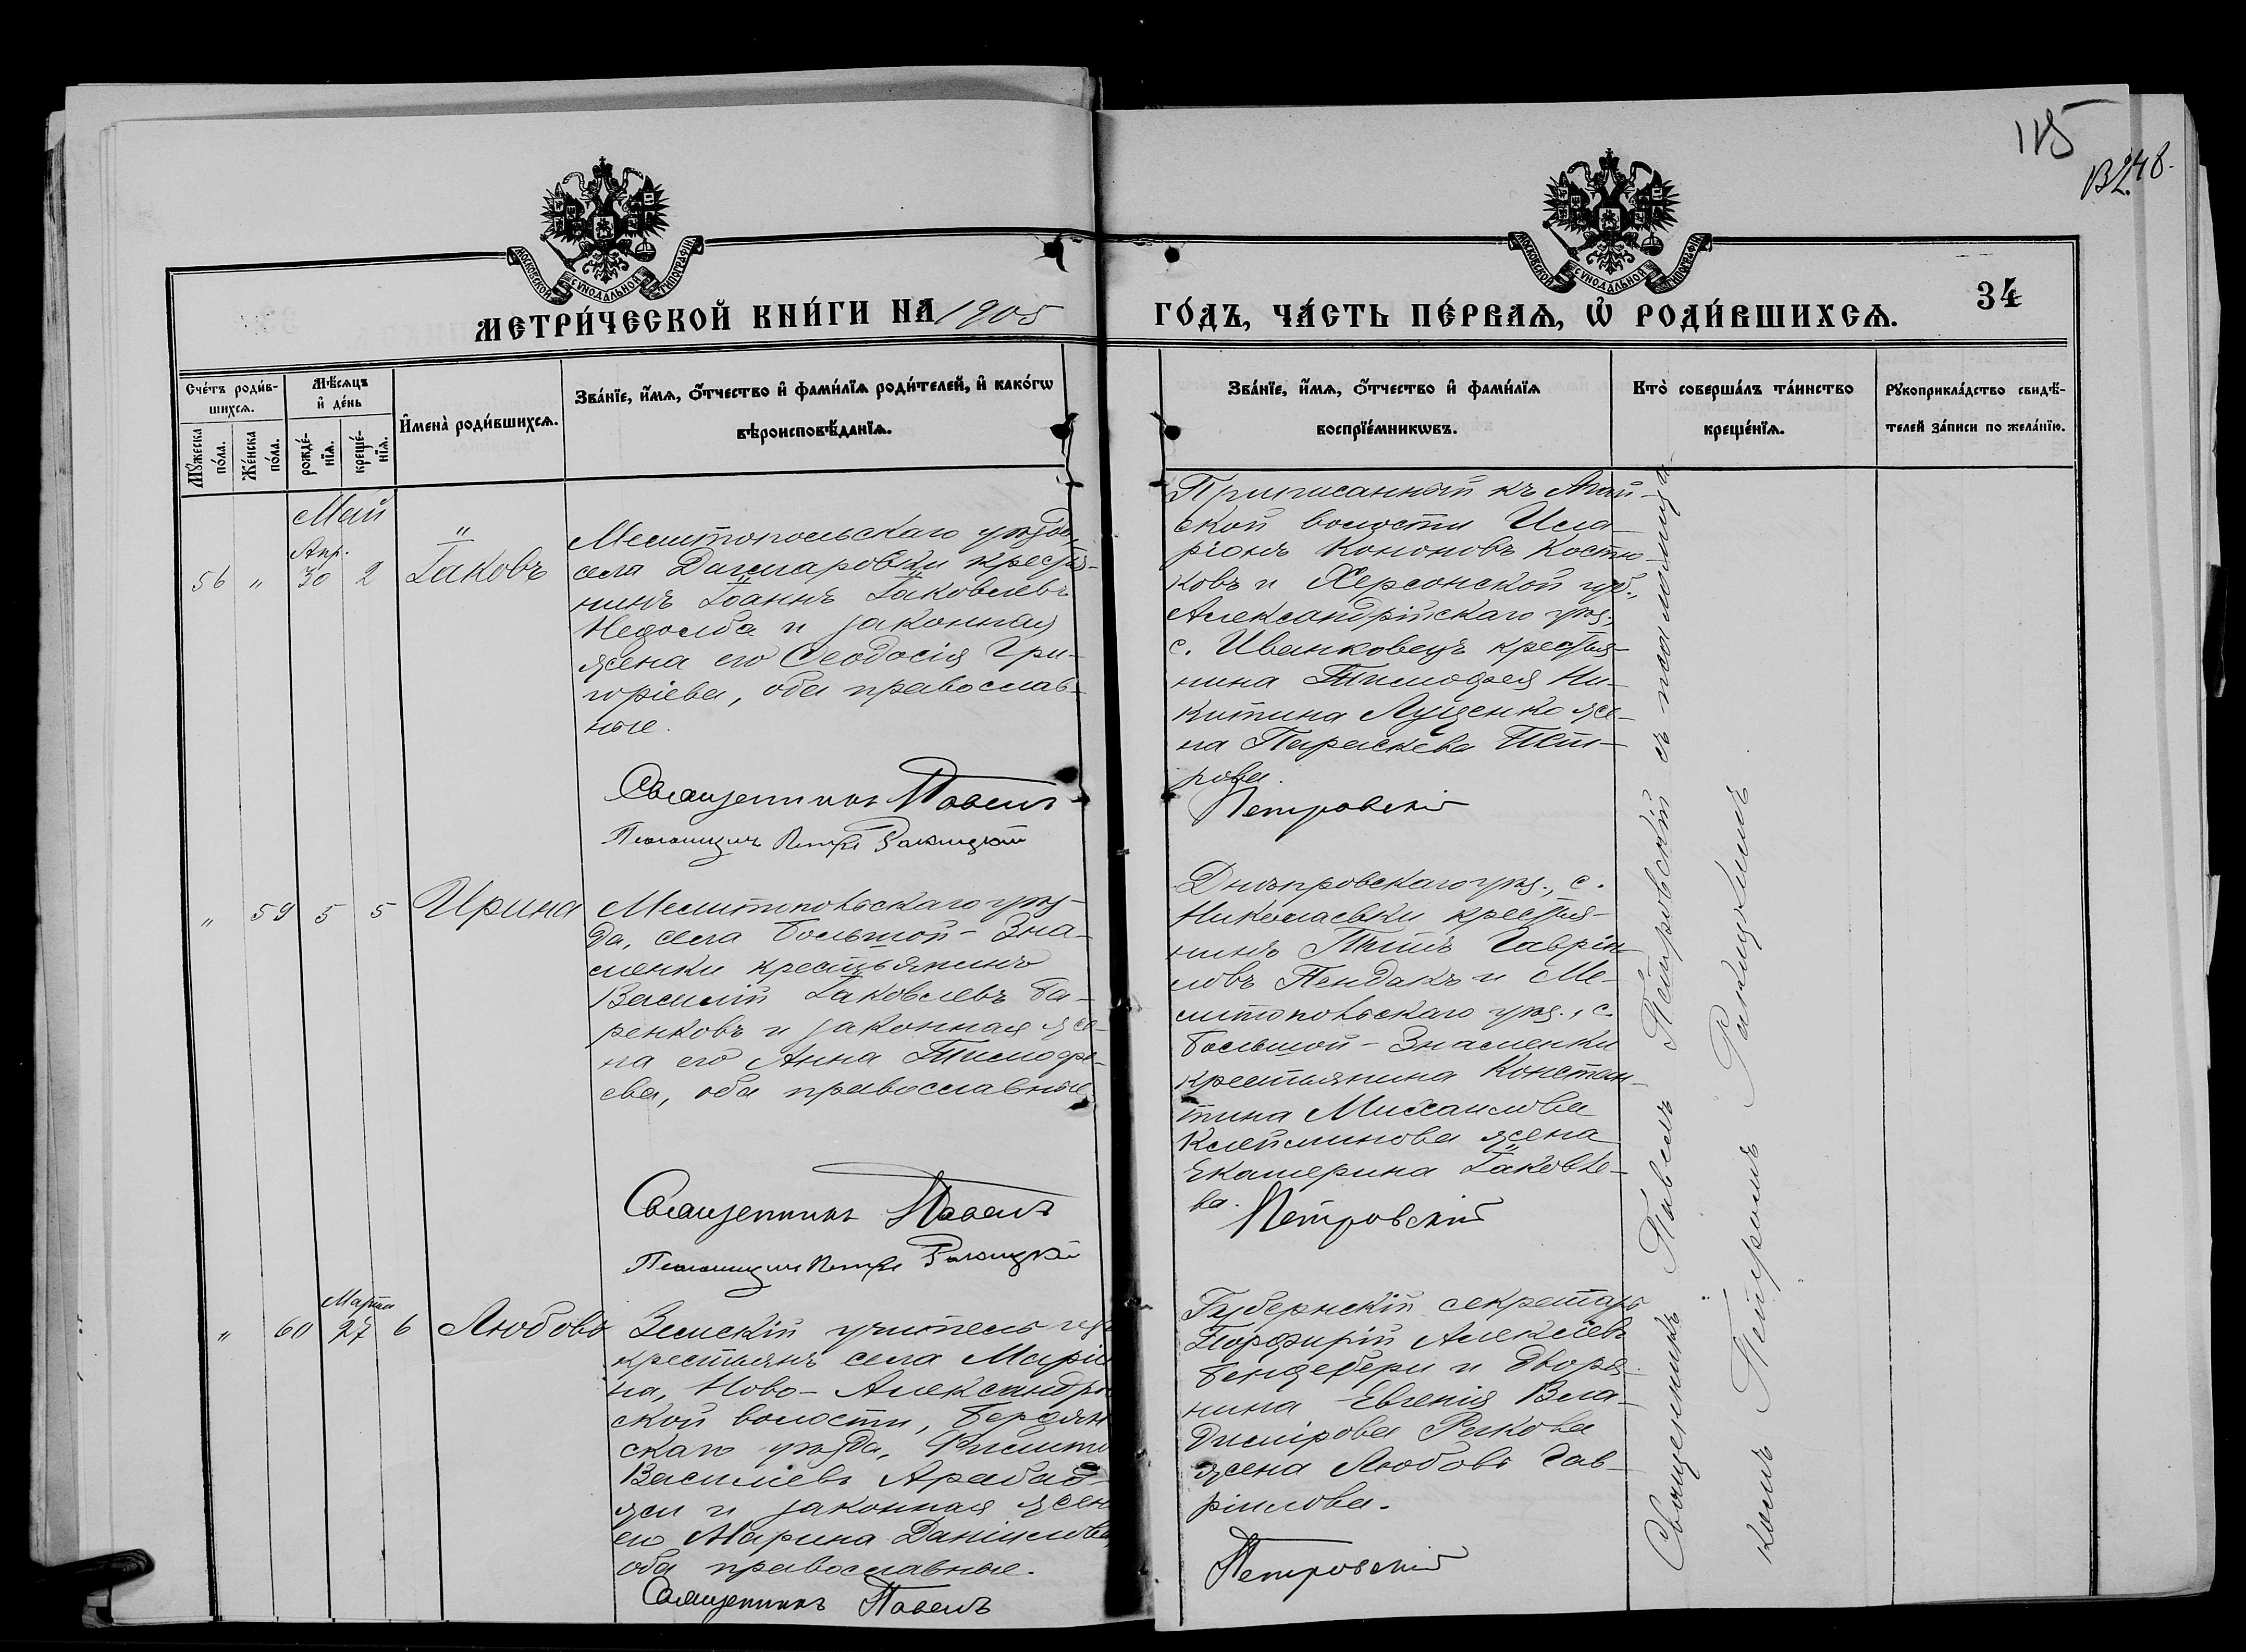 115
В 248.
МОСКОВСКОЙ СѴНОДАЛЬНОЙ ТИПОГРАФІИ
МОСКОВСКОЙ СѴНОДАЛЬНОЙ ТИПОГРАФІИ
МЕТРИ́ЧЕСКОЙ КНИ́ГИ НА 1905
ГО́ДЪ, ЧА́СТЬ ПЕ́РВАѦ, Ѡ҆ РОДИ́ВШИХСѦ.
34
Сче́тъ роди́в-
шихсѧ.
Мѣ́сѧцъ
и҆ де́нь
Мꙋ́жеска
по́ла.
Же́нска
по́ла.
рожде́-
нїѧ.
креще́-
нїѧ.
И҆мена̀ роди́вшихсѧ.
Зва́нїе, и҆́мѧ, ѻ҆́тчество и҆ фами́лїѧ роди́телей, и҆ како́гѡ
вѣроисповѣ́данїѧ.
Зва́нїе, и҆́мѧ, ѻ҆́тчество и҆ фами́лїѧ
воспрїе́мникѡвъ.
Кто̀ соверша́лъ та́инство
креще́нїѧ.
Рꙋкоприкла́дство свидѣ́-
телей за́писи по жела́нїю.
Май
Апр.
56 " 30 2 Іаковъ
Мелитопольскаго уѣзда,
села Дагмаровки крестья-
нинъ Іоаннъ Іаковлевъ
Недолба и законная
жена его Ѳеодосія Гри-
горіева, оба православ-
ные.
Священникъ Павелъ
Псаломщикъ Петръ Ракицкій
Приписанный къ Май-
ской волости Ила-
ріонъ Кононовъ Костю-
ковъ и Херсонской губ.,
Александрійскаго уѣз.,
с. Иванковецъ крестья-
нина Тимофея Ни-
китина Луценко же-
на Параскева Пет-
рова.
Петровскій
" 59 5 5 Ирина
Мелитопольскаго уѣз-
да, села Большой-Зна-
менки крестьянинъ
Василій Іаковлевъ Ба-
ренковъ и законная же-
на его Анна Тимофе-
ева, оба православные.
Священникъ Павелъ
Псаломщикъ Петръ Ракицкій
Днѣпровскаго уѣз., с.
Николаевки крестья-
нинъ Титъ Гаврiи-
ловъ Пендакъ и Ме-
литопольскаго уѣз., с.
Большой-Знаменки
крестьянина Констан-
тина Михаилова
Клейминова жена
Екатерина Іаковле-
ва.
Петровскій
Марта
" 60 27 6 Любовь
Земскій учитель изъ
крестьянъ села Марi
на, Ново-Александро
ской волости, Бердян
скаго уѣзда, Филипп
Василіевъ Арабад-
жи и законная жен
его Марина Даніилова
оба православные.
Священникъ Павелъ
Губернскій секретарь
Порфирій Алексіевъ
Бендебери и дворя-
нина Евгенія Вла-
димірова Рыкова
жена Любовь Гав-
ріилова.
Петровскій
Священникъ Павелъ Петровскій съ псаломщи-
комъ Петромъ Ракицкимъ.